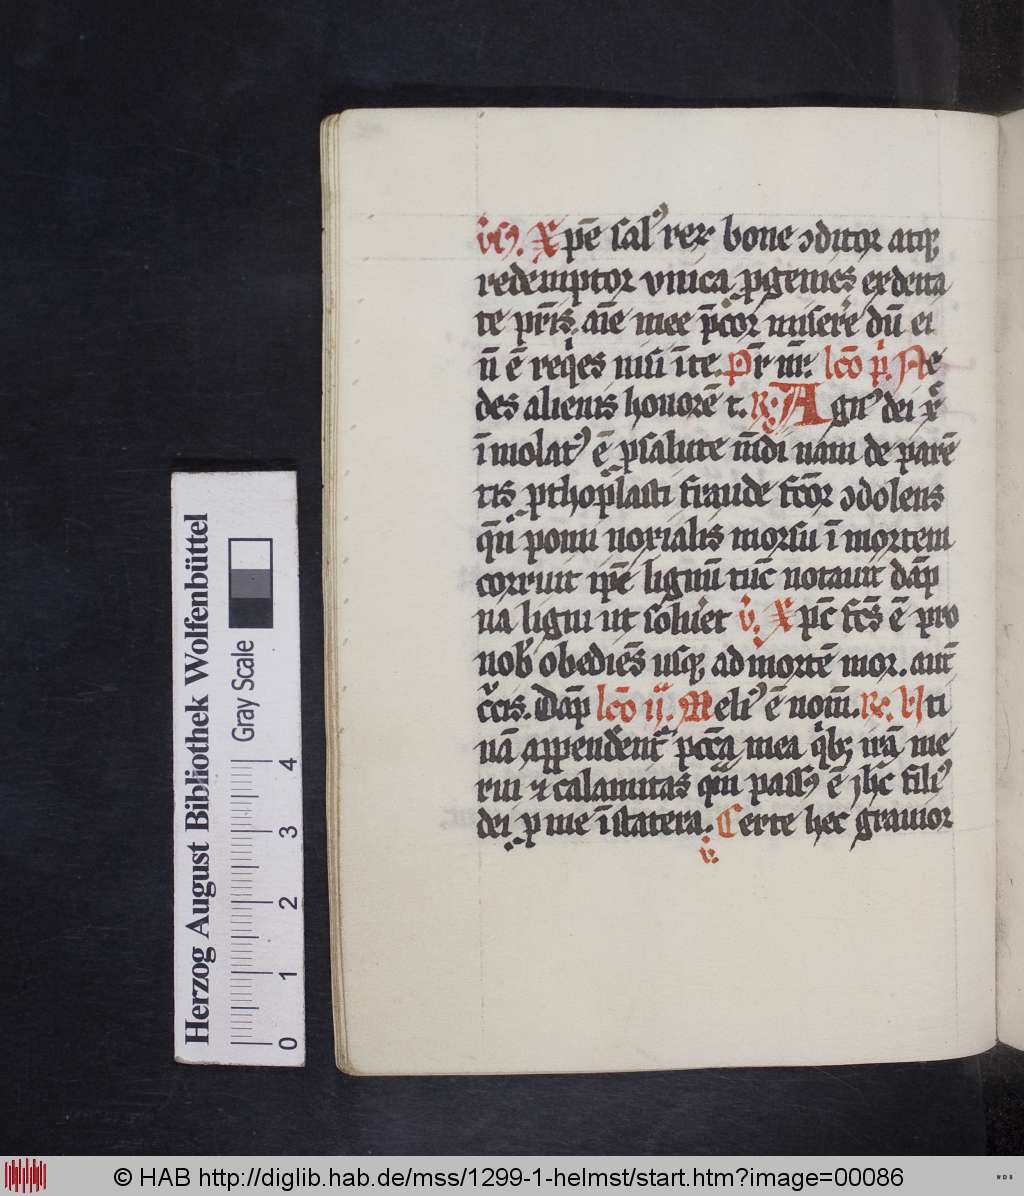 v̾s. Xpē salꝰ rex bone ꝯditor atqꝫ
redemptor vnica ꝓgenies exdeita
te pr̄is. aīe mee pc̄cor misere̾ dū ei
n̄ ē reqͥes nisi ī te. Pr̄ nr̄. lcō pͥ. Ne
des alienis honorē t. R. Agnꝰ dei xͥ
īmolatꝰ ē ꝓsalute mūdi nam de parē
tis ꝓthoplasti fraude fc̄or ꝯdolens
qn̄ pomi noxialis morsu ī mortem
corruit ip̄e lignū tūc notauit dāp
na ligni ut solue̾t v̾. Xpc̄ fc̄s ē pro
nob̾ obediēs usqꝫ ad mortē mor. aut̄
cͨcis. Dāp lcō ij. Meliꝰ ē nom̄. R. Vti
nā appendent̾ pcc̄a mea qͥbꝫ irā me
rui ⁊ calamitas quā passꝰ ē ihc̄ filiꝰ
dei ꝑ me ī statera. Certe hec grauior
v̾.
Herzog August Bibliothek Wolfenbüttel
Gray Scale
0 1 2 3 4
© HAB http://diglib.hab.de/mss/1299-1-helmst/start.htm?image=00086